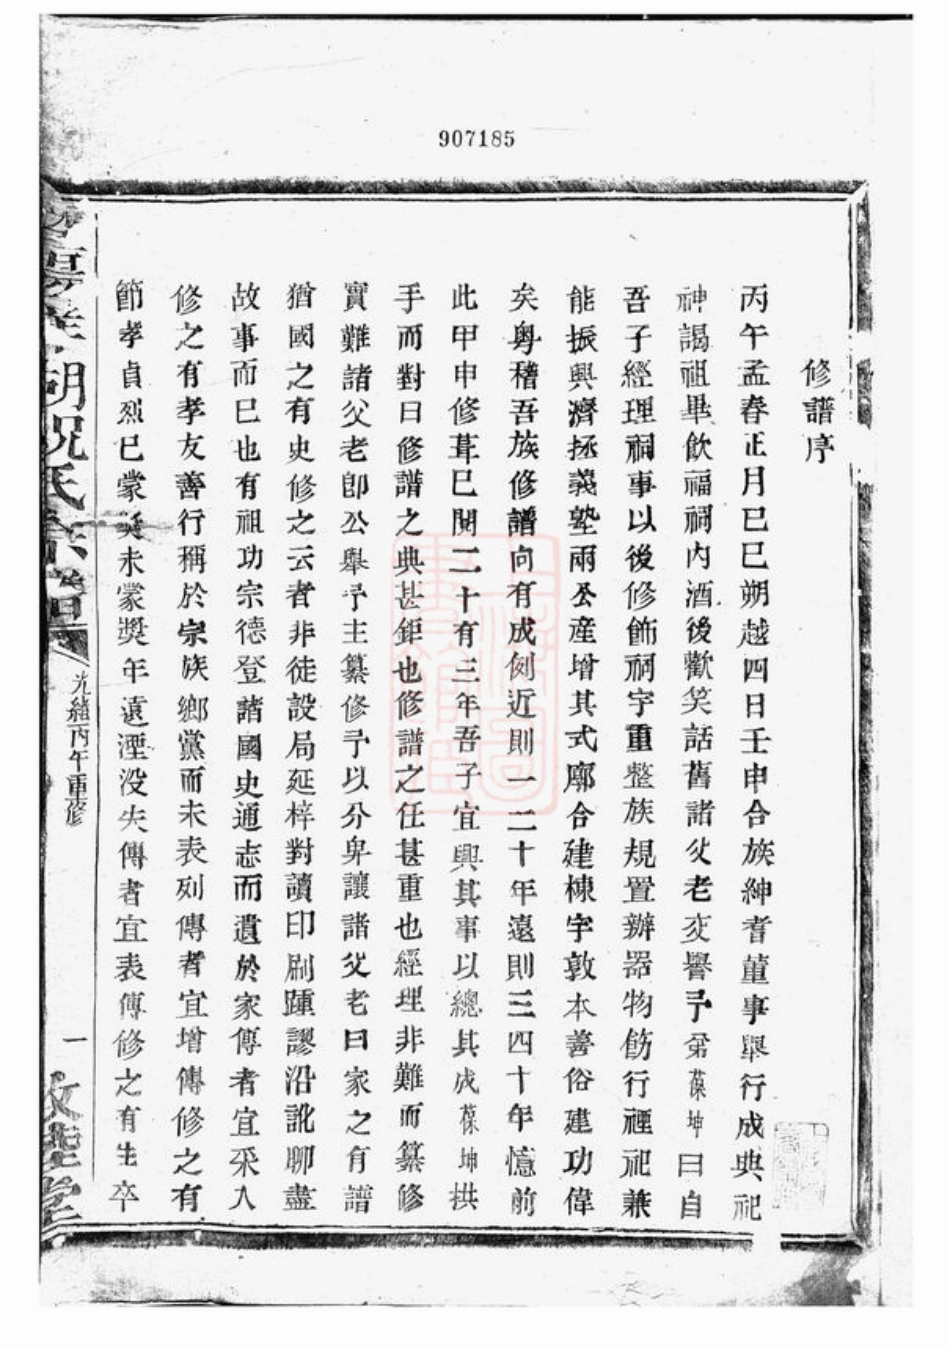 907185
修譜序
丙午孟春正月己巳朔越四日壬申合族紳耆董事舉行成典祀
神謁祖畢飲福祠內酒後歡笑話舊諸父老交譽予弟葆坤曰自
吾子經理祠事以後修飾祠宇重整族規置辦器物飭行禋祀兼
能振興濟拯義塾兩公產增其式廓合建棟宇敦本善俗建功偉
矣粵稽吾族修譜向有成例近則一二十年遠則三四十年憶前
此甲申修葺已閱二十有三年吾子宜興其事以總其成葆坤拱
手而對曰修譜之典甚鉅也修譜之任甚重也經理非難而纂修
實難諸父老卽公舉予主纂修予以分卑讓諸父老曰家之有譜
猶國之有史修之云者非徒設局延梓對讀印刷踵謬沿訛聊盡
故事而已也有祖功宗德登諸國史通志而遺於家傳者宜采入
修之有孝友善行稱於宗族鄉黨而未表列傳者宜增傳修之有
節孝貞烈已蒙奖未蒙獎年遠湮沒失傳者宜表傳修之有生卒
湖祝氏宗譜
光緒丙午重修
一